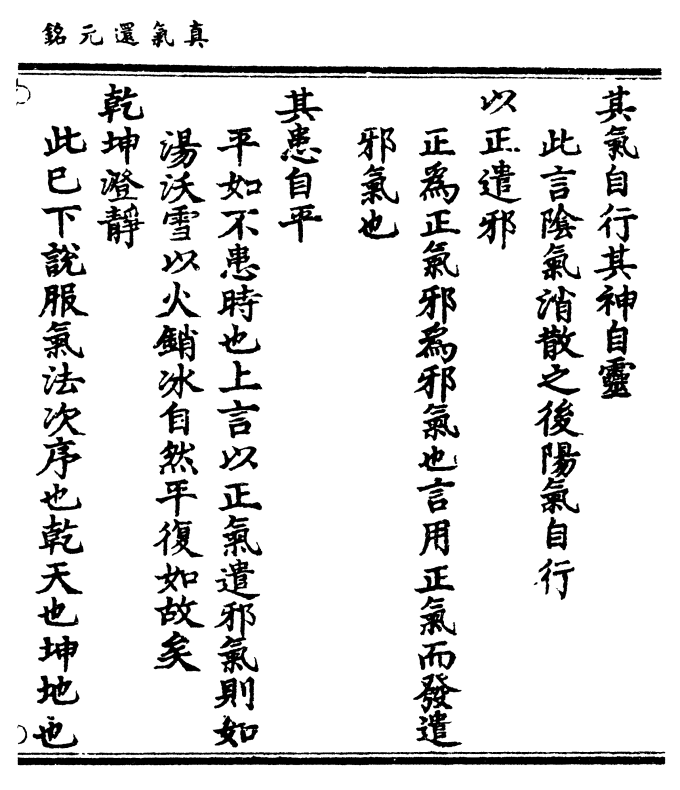 真氣還元銘
其氣自行其神自靈
此言陰氣消散之後陽氣自行
以正遣邪
正爲正氣邪爲邪氣也言用正氣而發遣
邪氣也
其患自平
平如不患時也上言以正氣遣邪氣則如
湯沃雪以火銷冰自然平復如故矣
乾坤澄靜
此已下說服氣法次序也乾天也坤地也